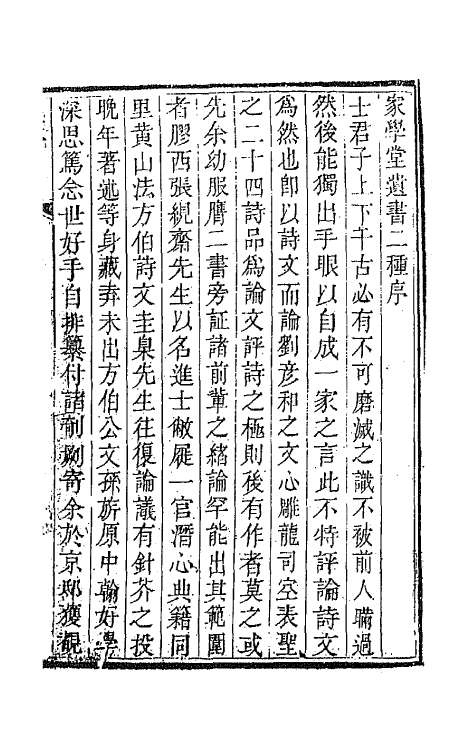 家學堂遺書二種序
士君子上下千古必有不可磨滅之識不被前人瞞過
然後能獨出手眼以自成一家之言此不特評論詩文
爲然也卽以詩文而論劉彥和之文心雕龍司空表聖
之二十四詩品爲論文評詩之極則後有作者莫之或
先余幼服膺二書旁証諸前軰之緒論罕能出其範圍
者膠西張繩齋先生以名進士敝屣一官潛心典籍同
里黄山法方伯詩文圭臬先生往復論議有針芥之投
晚年著述等身藏弆未出方伯公文孫旂原中翰好學
深思篤念世好手自排纂付諸剞劂寄余於京邸獲覩